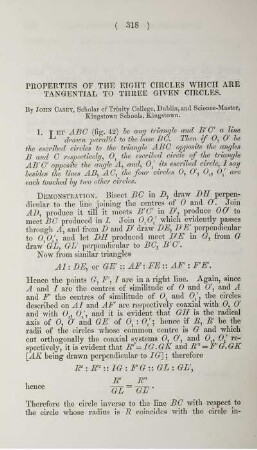 ( 318 )
PROPERTIES OF THE EIGHT CIRCLES WHICH ARE
TANGENTIAL TO THREE GIVEN CIRCLES.
By JOHN CASEY, Scholar of Trinity College, Dublin, and Science-Master,
Kingstown Schools, Kingstown.
1. LET ABC (fig. 42) be any triangle and B'C' a line
drawn parallel to the base BC. Then if O, O' be
the escribed circles to the triangle ABC opposite the angles
B and C respectively, O, the escribed circle of the triangle
AB'C' opposite the angle A, and, O,' its escribed circle, I say
besides the lines AB, AC, the four circles O, O', O,, O,' are
each touched by two other circles.
DEMONSTRATION. Bisect BC in D, draw DH perpen-
dicular to the line joining the centres of O and O'. Join
AD, produce it till it meets B'C' in D', produce OO' to
meet BC produced in I. Join O,O,' which evidently passes
through A, and from D and D' draw DE, D'E' perpendicular
to O,O,', and let DH produced meet D'E' in G, from G
draw GL, GL' perpendicular to BC, B'C'.
Now from similar triangles
AI : DE, or GE :: AF : FE :: AF' : F'E'.
Hence the points G, F, I are in a right line. Again, since
A and I are the centres of similitude of O and O', and A
and F' the centres of similitude of O, and O,', the circles
described on AI and AF' are respectively coaxal with O, O'
and with O,, O,', and it is evident that GH is the radical
axis of O, O' and GE' of O, : O,'; hence if R, R' be the
radii of the circles whose common centre is G and which
cut orthogonally the coaxial systems O, O', and O,, O,' re-
spectively, it is evident that R² = IG.GK and R'² = F'G.GK
[AK being drawn perpendicular to IG]; therefore
R² : R'² :: IG : F'G :: GL : GL',
hence R²/GL = R'²/GL'.
Therefore the circle inverse to the line BC with respect to
the circle whose radius is R coincides with the circle in-